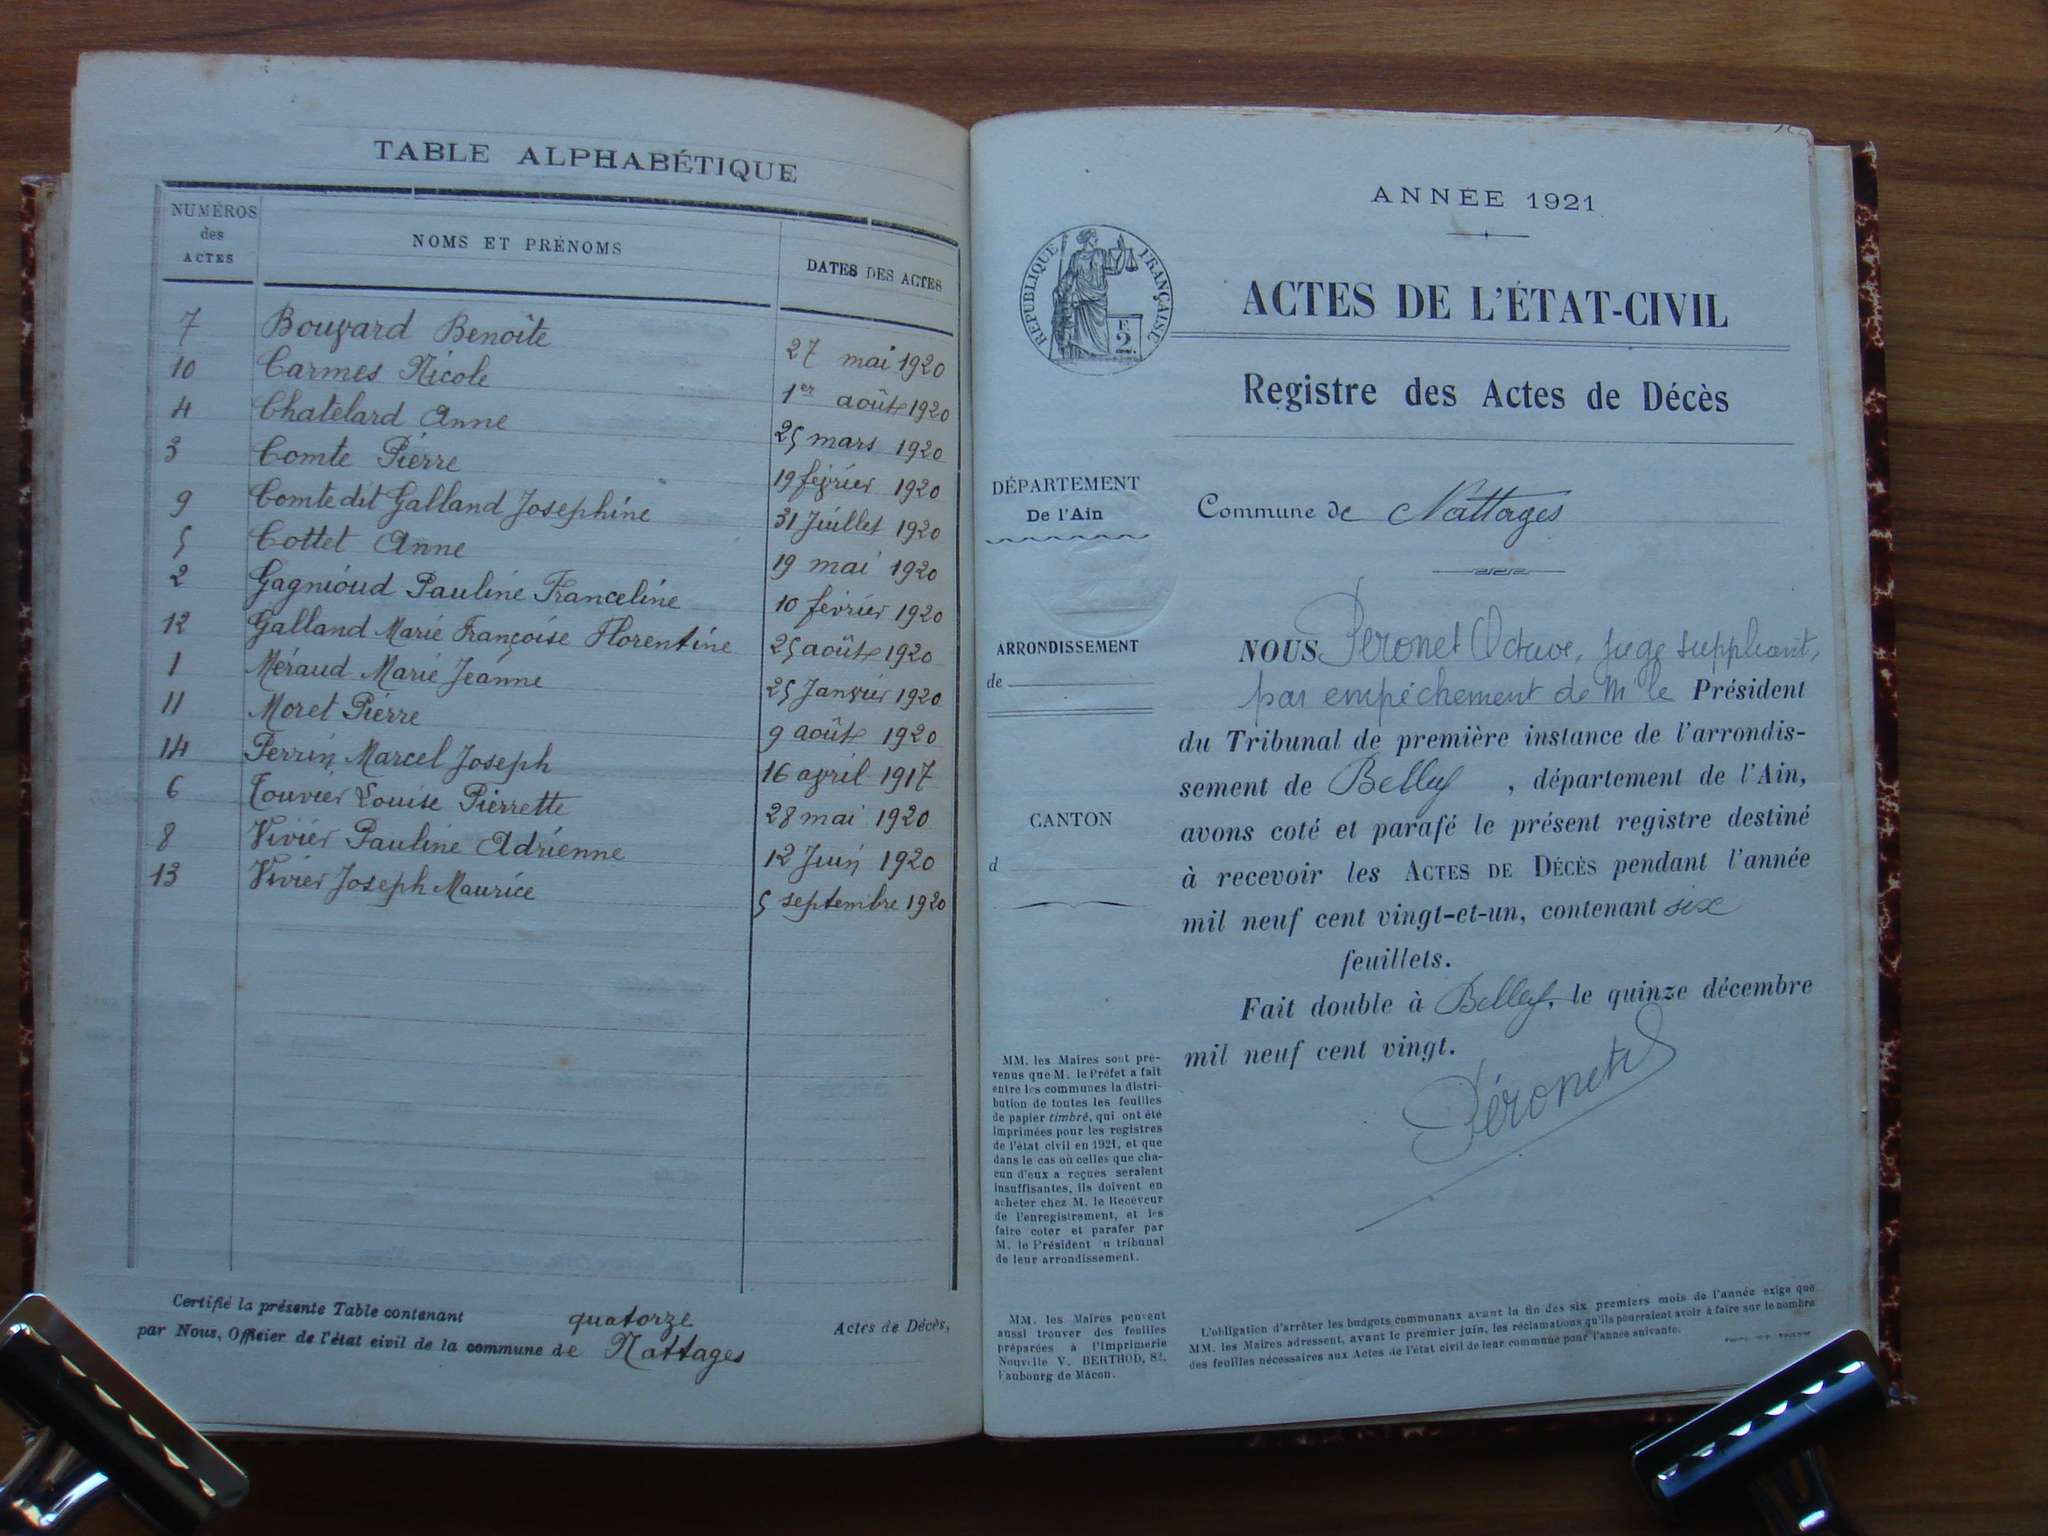 TABLE ALPHABÉTIQUE
NUMÉROS des ACTES NOMS ET PRÉNOMS DATES DES ACTES
7 Bouvard Benoîte 27 mai 1920
10 Carmes Nicole 1er août 1920
4 Chatelard Anne 25 mars 1920
3 Comte Pierre 19 février 1920
9 Comte dit Galland Josephine 31 Juillet 1920
5 Cottet Anne 19 mai 1920
2 Gagnioud Pauline Franceline 10 février 1920
12 Galland Marie Françoise Florentine 25 août 1920
1 Méraud Marie Jeanne 25 Janvier 1920
11 Moret Pierre 9 août 1920
14 Perrin Marcel Joseph 16 avril 1917
6 Touvier Louise Pierrette 28 mai 1920
8 Vivier Pauline Adrienne 12 Juin 1920
13 Vivier Joseph Maurice 5 septembre 1920
Certifié la présente Table contenant quatorze Actes de Décès,
par Nous, Officier de l'état civil de la commune de Nattages
ANNÉE 1921
RÉPUBLIQUE FRANÇAISE
F.
2.
ACTES DE L'ÉTAT-CIVIL
Registre des Actes de Décès
DÉPARTEMENT
De l'Ain
ARRONDISSEMENT
de
CANTON
d
MM. les Maires sont pré-
venus que M. le Préfet a fait
entre les communes la distri-
bution de toutes les feuilles
de papier timbré, qui ont été
imprimées pour les registres
de l'état civil en 1921, et que
dans le cas où celles que cha-
cun d'eux a reçues seraient
insuffisantes, ils doivent en
acheter chez M. le Receveur
de l'enregistrement, et les
faire coter et parafer par
M. le Président u tribunal
de leur arrondissement.
MM. les Maires peuvent
aussi trouver des feuilles
préparées à l'Imprimerie
Nouvelle V. BERTHOD, 82,
Faubourg de Mâcon.
Commune de Nattages
NOUS Péronet Octave, juge suppléant,
par empêchement de Mr le Président
du Tribunal de première instance de l'arrondis-
sement de Belley , département de l'Ain,
avons coté et parafé le présent registre destiné
à recevoir les ACTES DE DÉCÈS pendant l'année
mil neuf cent vingt-et-un, contenant six
feuillets.
Fait double à Belley, le quinze décembre
mil neuf cent vingt.
Péronet
L'obligation d'arrêter les budgets communaux avant la fin des six premiers mois de l'année exige que
MM. les Maires adressent, avant le premier juin, les réclamations qu'ils pourraient avoir à faire sur le nombre
des feuilles nécessaires aux Actes de l'état civil de leur commune pour l'année suivante.